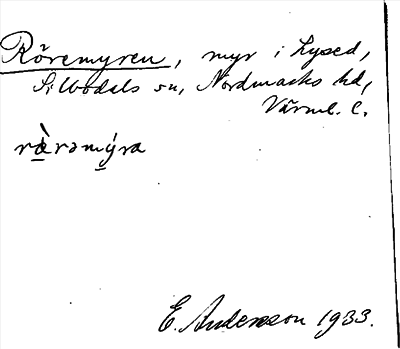 Röremyren, myr i Lysed,
Silbodals sn, Nordmarks hd,
Värml. l.
rä̀rəmýra
E. Anderson 1933.